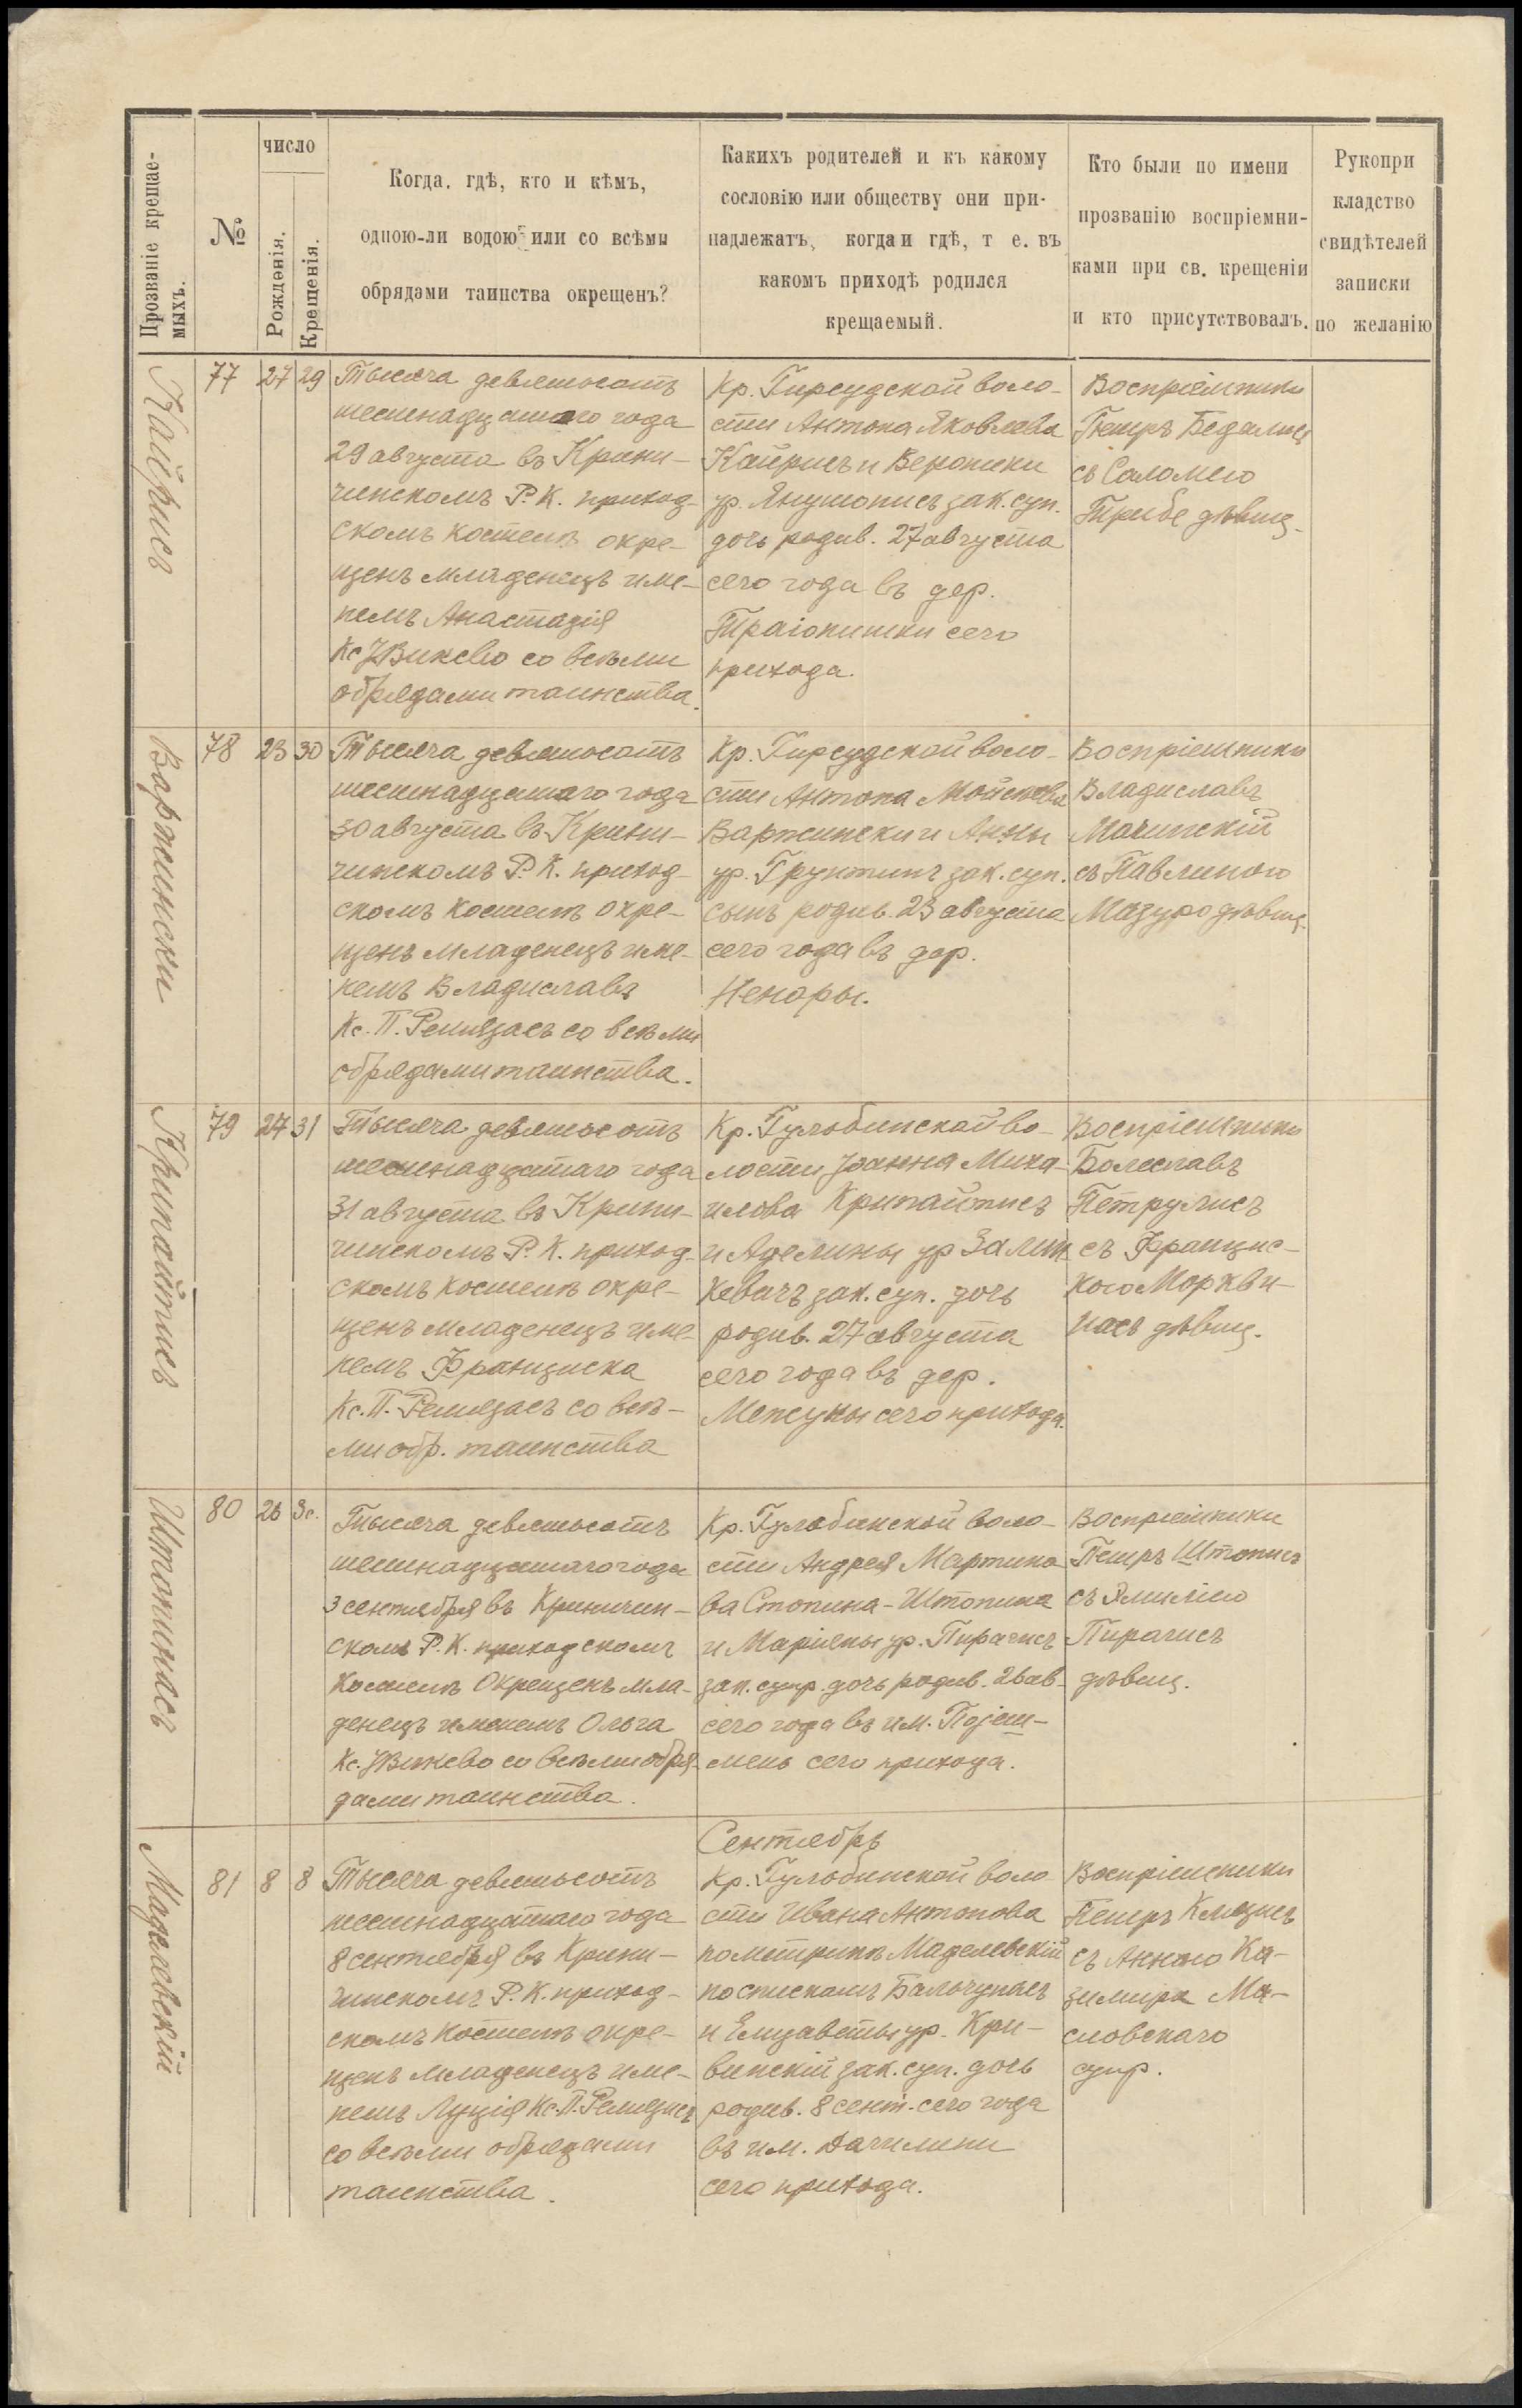 Прозваніе крещае-
мыхъ.
№
число
Рожденія.
Крещенія.
Когда, гдѣ, кто и кѣмъ,
одною-ли водою или со всѣми
обрядами таинства окрещенъ?
Какихъ родителей и къ какому
сословію или обществу они при-
надлежатъ, когда и гдѣ, т е. въ
какомъ приходѣ родился
крещаемый.
Кто были по имени
прозванію воспріемни-
ками при св. крещеніи
и кто присутствовалъ.
Рукопри
кладство
свидѣтелей
записки
по желанію
Кайрисъ
77
27
29
Тысяча девятьсотъ
шестнадцатаго года
29 августа въ Крини-
чинскомъ Р. К. приход-
скомъ костелѣ окре-
щенъ младенецъ име-
немъ Анастазія
Кс J Викево со всѣми
обрядами таинства.
Кр. Гирсудской воло-
сти Антона Яковлева
Кайрисъ и Вероники
ур. Янушонисъ зак. суп.
дочь родив. 27 августа
сего года въ дер.
Траіонишки сего
прихода.
Воспріемники
Петръ Бедалисъ
съ Саломею
Трибе дѣвиц.
Варжински
78
23
30
Тысяча девятьсотъ
шестнадцатаго года
30 августа въ Крини-
чинскомъ Р. К. приход-
скомъ костелѣ окре-
щенъ младенецъ име-
немъ Владиславъ
Кс. П. Ремязасъ со всѣми
обрядами таинства.
Кр. Гирсудской воло-
сти Антона Мойсеева
Варжински и Анны
ур. Грунтинъ зак. суп.
сынъ родив. 23 августа
сего года въ дер.
Неноры.
Воспріемники
Владиславъ
Мачинскій
съ Павлиною
Мазуро дѣвиц.
Крипайтисъ
79
27
31
Тысяча девятьсотъ
шестнадцатаго года
31 августа въ Крини-
чинскомъ Р. К. приход-
скомъ костелѣ окре-
щенъ младенецъ име-
немъ Франциска
Кс. П. Ремязасъ со всѣ-
ми обр. таинства
Кр. Гульбинской во-
лости Іоанна Миха-
илова Крипайтисъ
и Аделины ур Залин-
кевичъ зак. суп. дочь
родив. 27 августа
сего года въ дер.
Межуны сего прихода.
Воспріемники
Болеславъ
Петрулисъ
съ Францис-
кою Моркви-
насъ дѣвиц.
Штопинасъ
80
26
3с.
Тысяча девятьсотъ
шестнадцатаго года
3 сентября въ Криничин-
скомъ Р. К. приходскомъ
костелѣ окрещенъ мла-
денецъ именемъ Ольга
Кс. J Викево со всѣми обря-
дами таинства.
Кр. Гульбинской воло-
сти Андрея Мартина-
ва Стопина-Штопина
и Маріяны ур. Пирагисъ
зак. супр. дочь родив. 26 ав-
сего года въ им. Поjеш-
мень сего прихода.
Воспріемники
Петръ Штописъ
съ Эмиліею
Пирагисъ
дѣвиц.
Сентябрь
Маделевскій
81
8
8
Тысяча девятьсотъ
шестнадцатаго года
8 сентября въ Крини-
чинскомъ Р. К. приход-
скомъ костелѣ окре-
щенъ младенецъ име-
немъ Луція Кс. П. Ремязисъ
со всѣми обрядами
таинства.
Кр. Гульбинской воло
сти Ивана Антонова
по метрикѣ Маделевскій
по спискамъ Бальчунасъ
и Елизаветы ур. Кри-
винскій зак. суп. дочь
родив. 8 сент. сего года
въ им. Дачилини
сего прихода.
Воспріемники
Петръ Клезисъ
съ Анною Ка-
зимира Ма-
словскаго
супр.